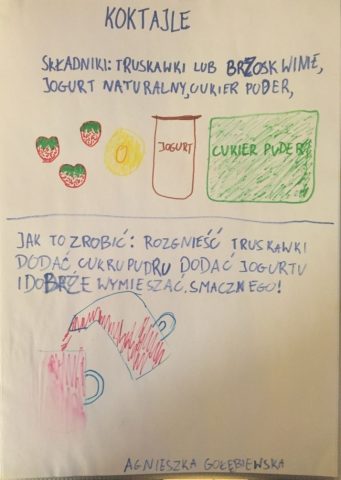 KOKTAJLE
SKŁADNIKI: TRUSKAWKI LUB BRZOSKWINIĘ,
JOGURT NATURALNY, CUKIER PUDER,
JOGURT
CUKIER PUDER
JAK TO ZROBIĆ: ROZGNIEŚĆ TRUSKAWKI
DODAĆ CUKRU PUDRU DODAĆ JOGURTU
I DOBRZE WYMIESZAĆ. SMACZNEGO!
AGNIESZKA GOŁĘBIEWSKA